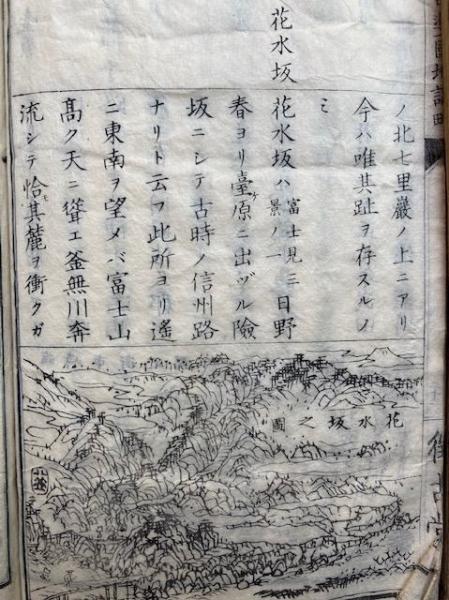 花水坂
ノ北七里巌ノ上ニアリ
今ハ唯其趾ヲ存スルノ
ミ
花水坂ハ富士見三景ノ一日野
春ヨリ臺ケ原ニ出ヅル險
坂ニシテ古時ノ信州路
ナリト云フ此所ヨリ遙
ニ東南ヲ望メバ富士山
高ク天ニ聳エ釜無川奔
流シテ恰モ其麓ヲ衝クガ
花水坂之圖